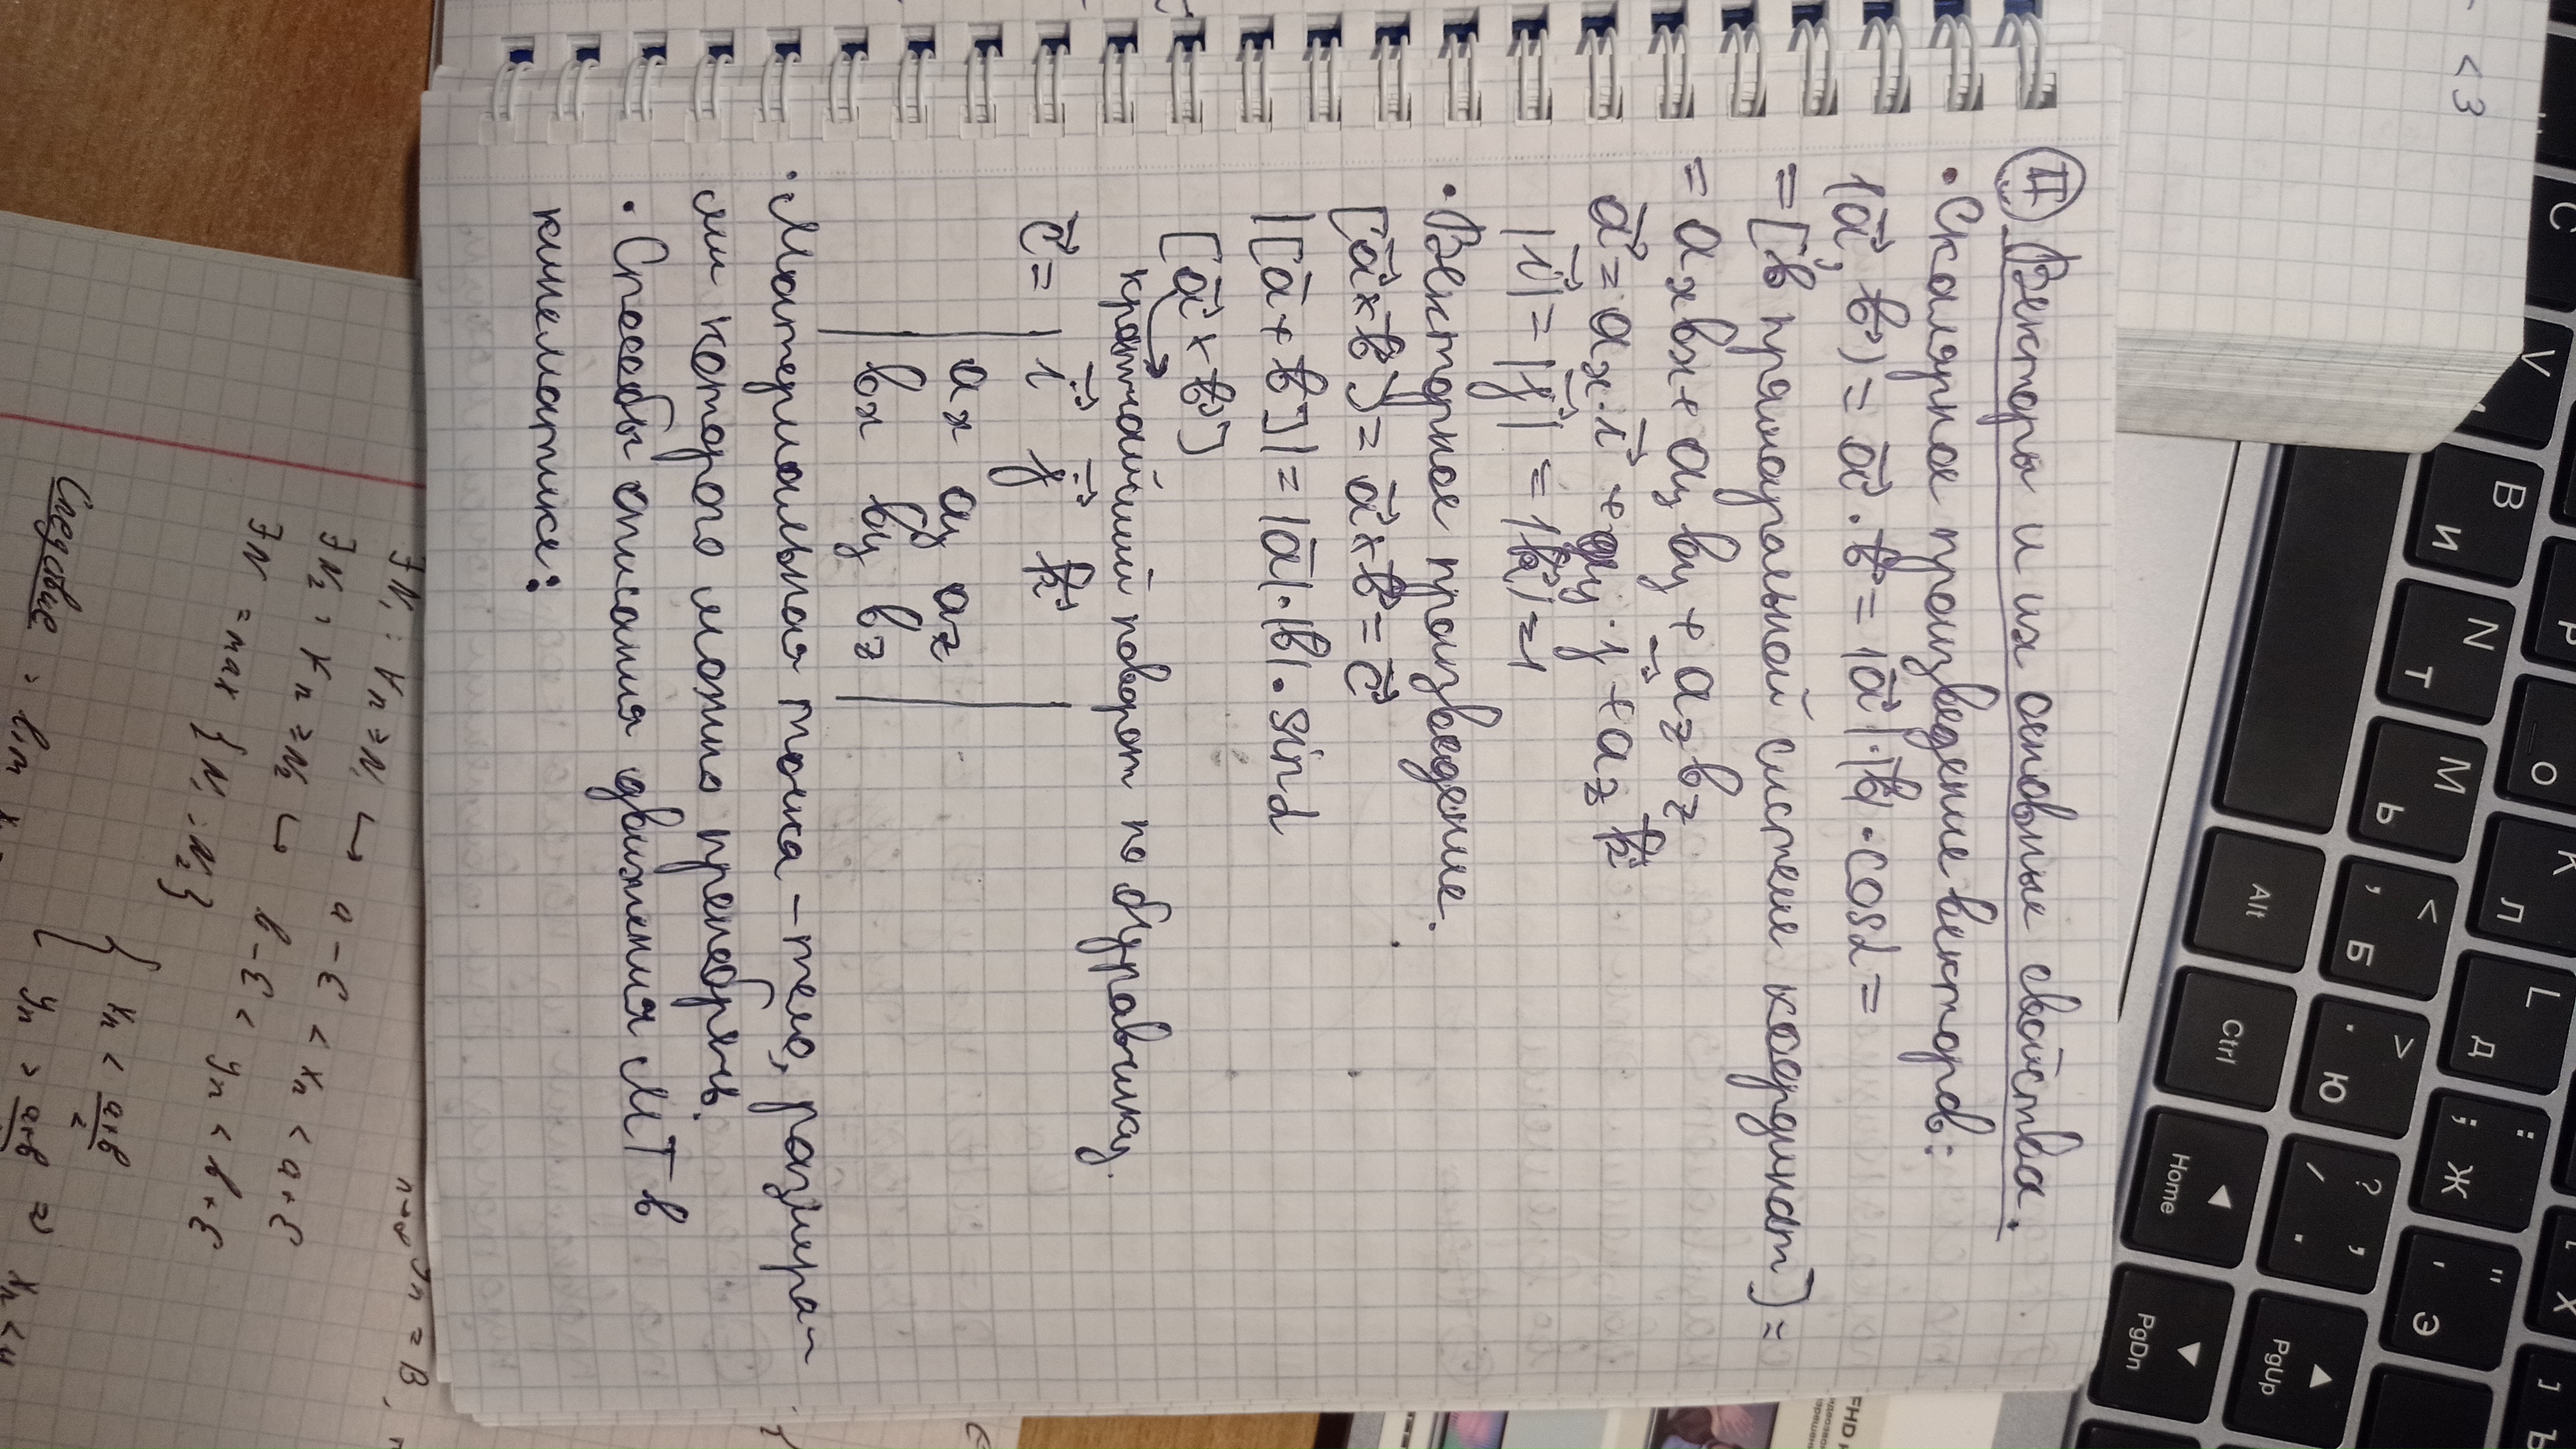 II Векторы и их основные свойства.
• Скалярное произведение векторов:
(a⃗, b⃗) = a⃗ · b⃗ = |a⃗| · |b⃗| · cosα =
= [в прямоугольной системе координат] =
= axbx + ayby + azbz
a⃗ = ax · i⃗ + ay · j⃗ + az k⃗
|i⃗| = |j⃗| = |k⃗| = 1
• Векторное произведение.
[a⃗ × b⃗] = a⃗ × b⃗ = c⃗
|[a⃗ × b⃗]| = |a⃗| · |b| · sinα
[a⃗ × b⃗]
кратчайший поворот по буравчику.
c⃗ = | i⃗ j⃗ k⃗
ax ay az
bx by bz |
• Материальная точка – тело, размера-
ми которого можно пренебречь.
• Способы описания движения МТ в
кинематике:
<3
∃N₁ : ∀n ≥ N₁ ↪ a - ε < xn < a + ε
∃N₂ : ∀n ≥ N₂ ↪ b - ε < yn < b + ε
∃N = max {N₁; N₂}
{ xn < a+b/2
yn > a+b/2 ⇒ xn < y
Следствие : lim x
n→∞ yn = B,
C
V
B И
N Т
M Ь
Alt
< , Б
K Л
L Д
_ O
P
Ctrl
> . Ю
: ; Ж
? / , .
" ' Э
Home
PgUp
PgDn
Х
Ъ
FHD